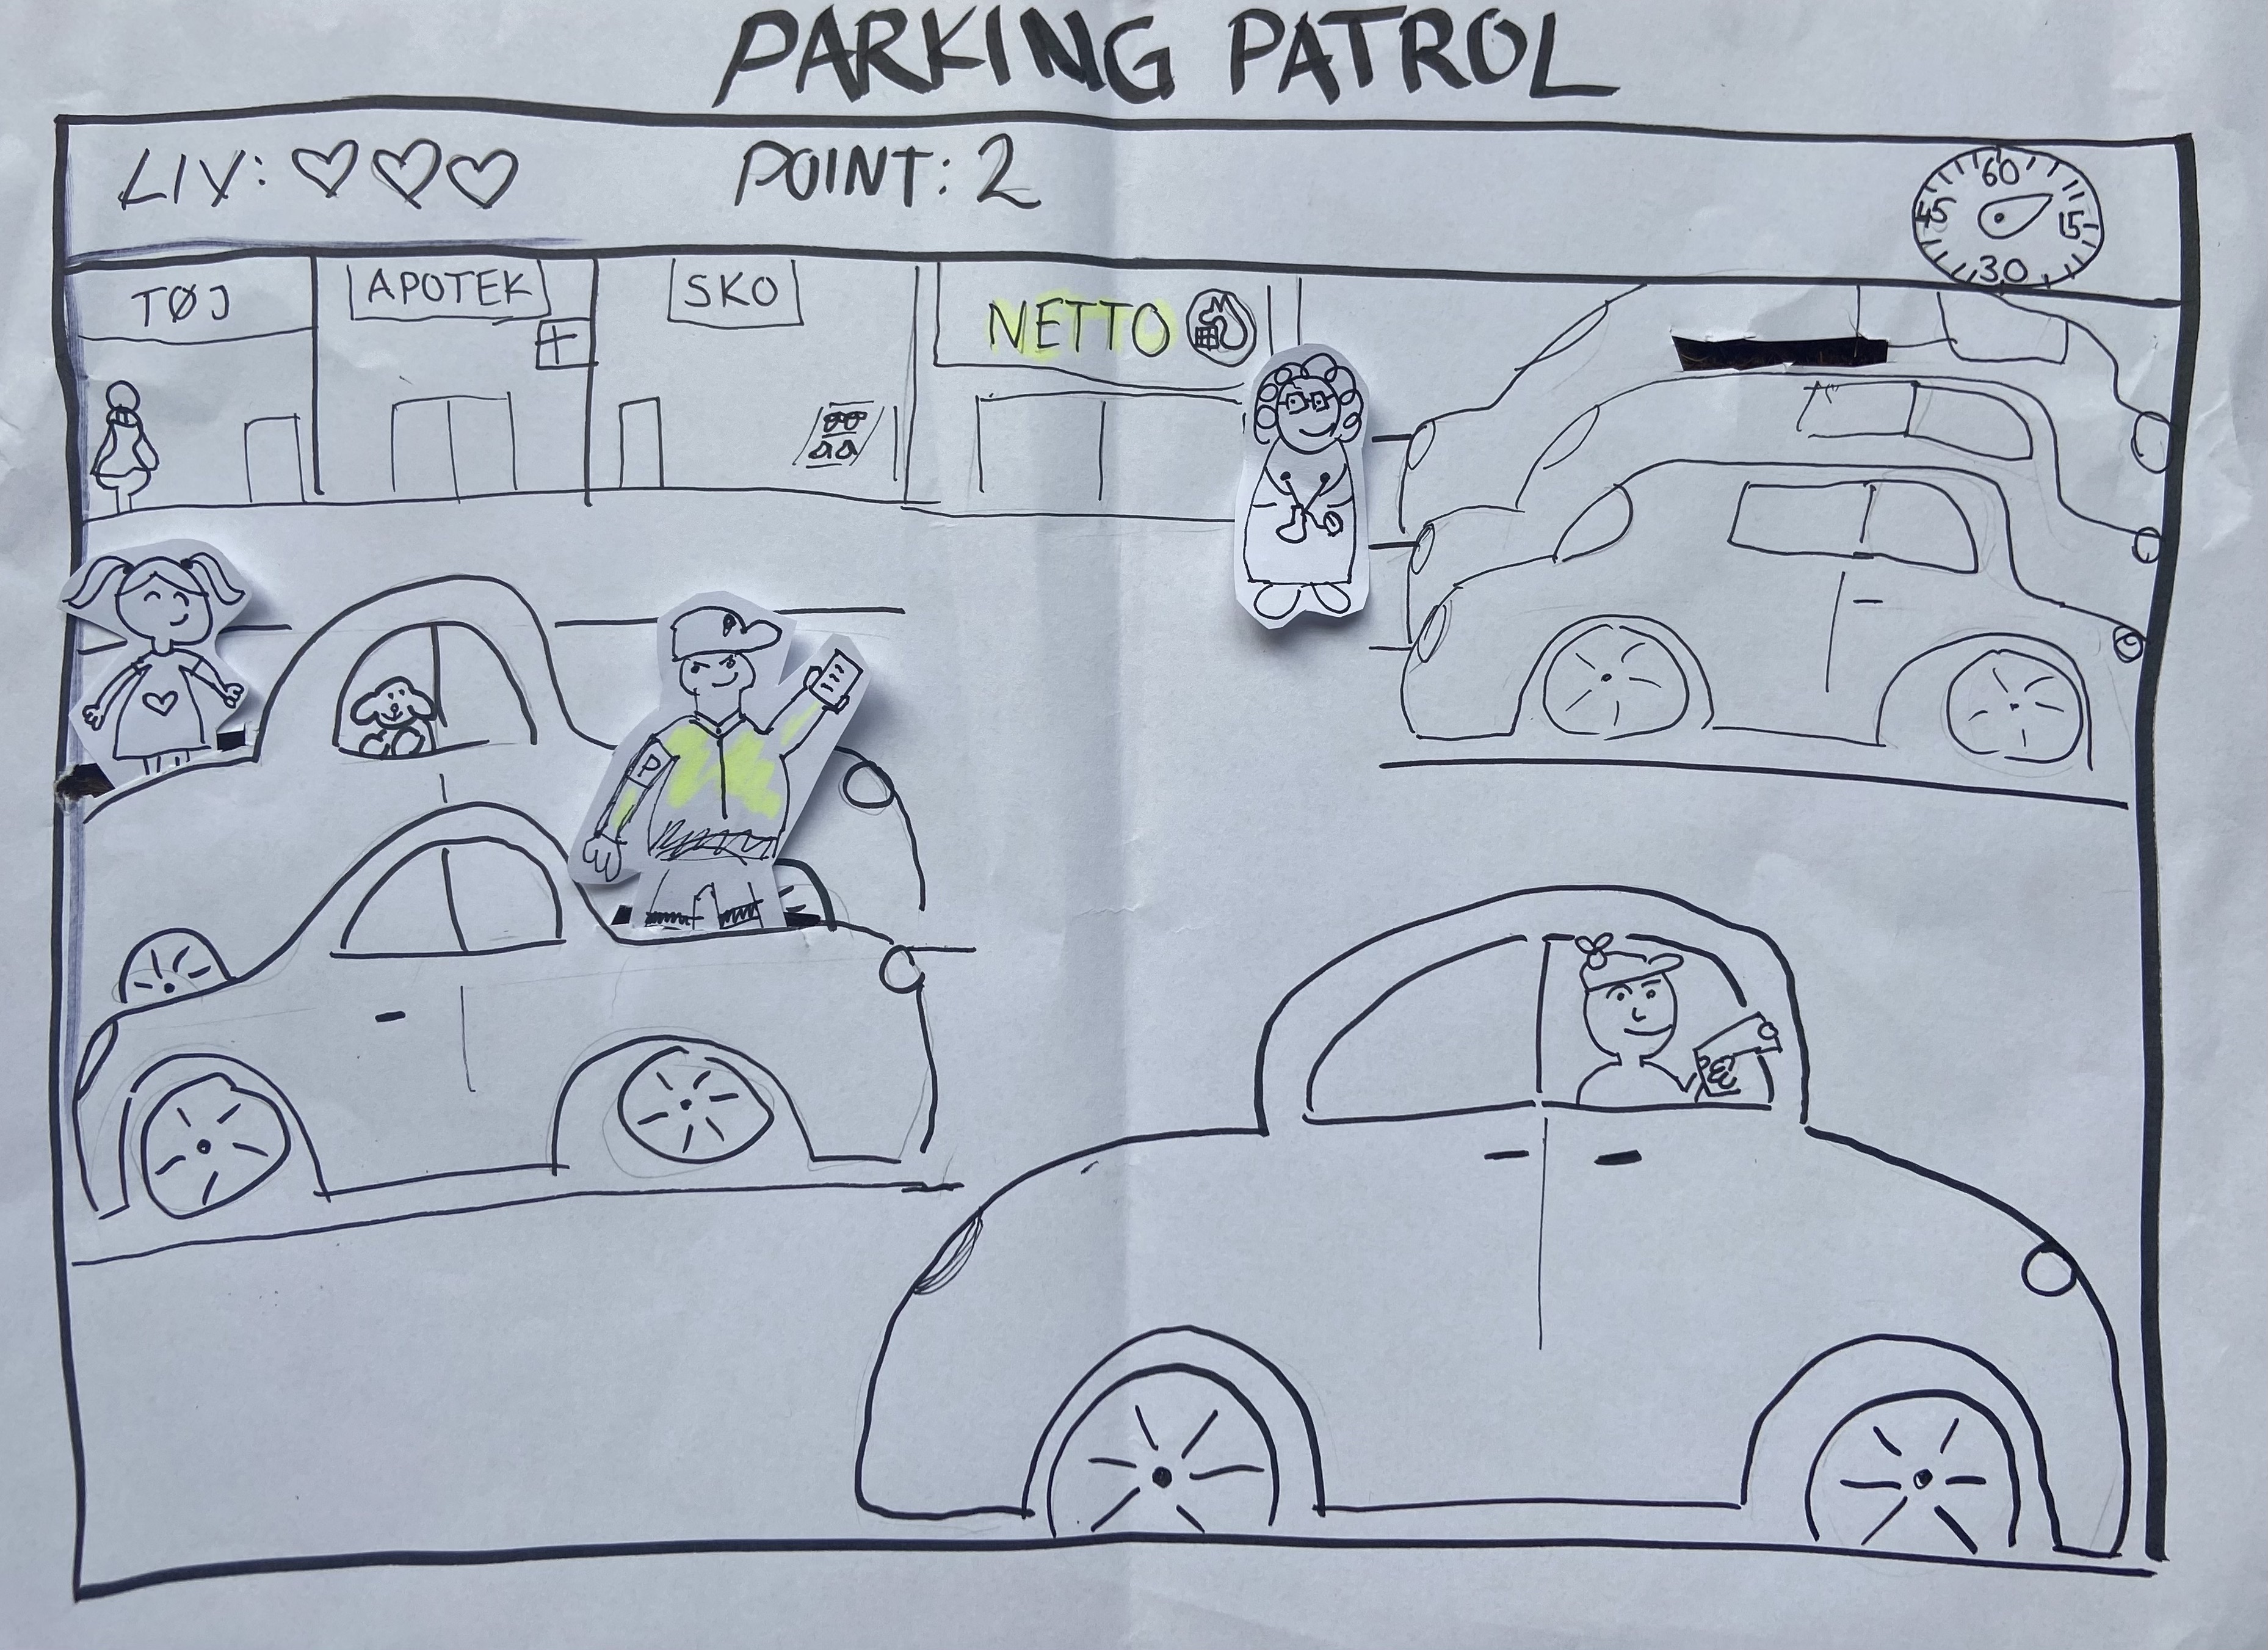 PARKING PATROL
LIV: ♡♡♡
POINT: 2
60
15
30
45
TØJ
APOTEK
SKO
NETTO
P